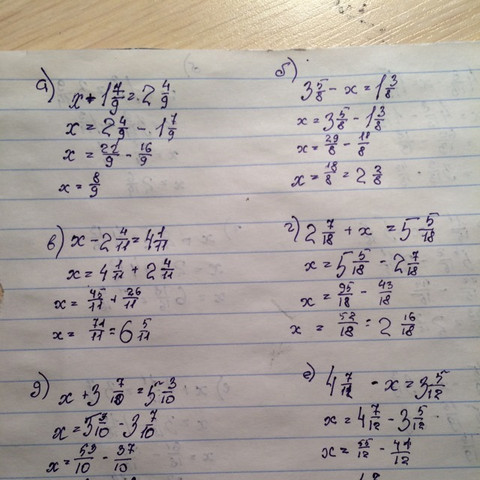 а) x + 1 7/9 = 2 4/9
x = 2 4/9 - 1 7/9
x = 22/9 - 16/9
x = 8/9
б) 3 5/8 - x = 1 3/8
x = 3 5/8 - 1 3/8
x = 29/8 - 18/8
x = 18/8 = 2 3/8
в) x - 2 4/11 = 4 1/11
x = 4 1/11 + 2 4/11
x = 45/11 + 26/11
x = 71/11 = 6 5/11
г) 2 7/18 + x = 5 5/18
x = 5 5/18 - 2 7/18
x = 95/18 - 43/18
x = 52/18 = 2 16/18
д) x + 3 7/10 = 5 3/10
x = 5 3/10 - 3 7/10
x = 53/10 - 37/10
е) 4 7/12 - x = 3 5/12
x = 4 7/12 - 3 5/12
x = 55/12 - 41/12